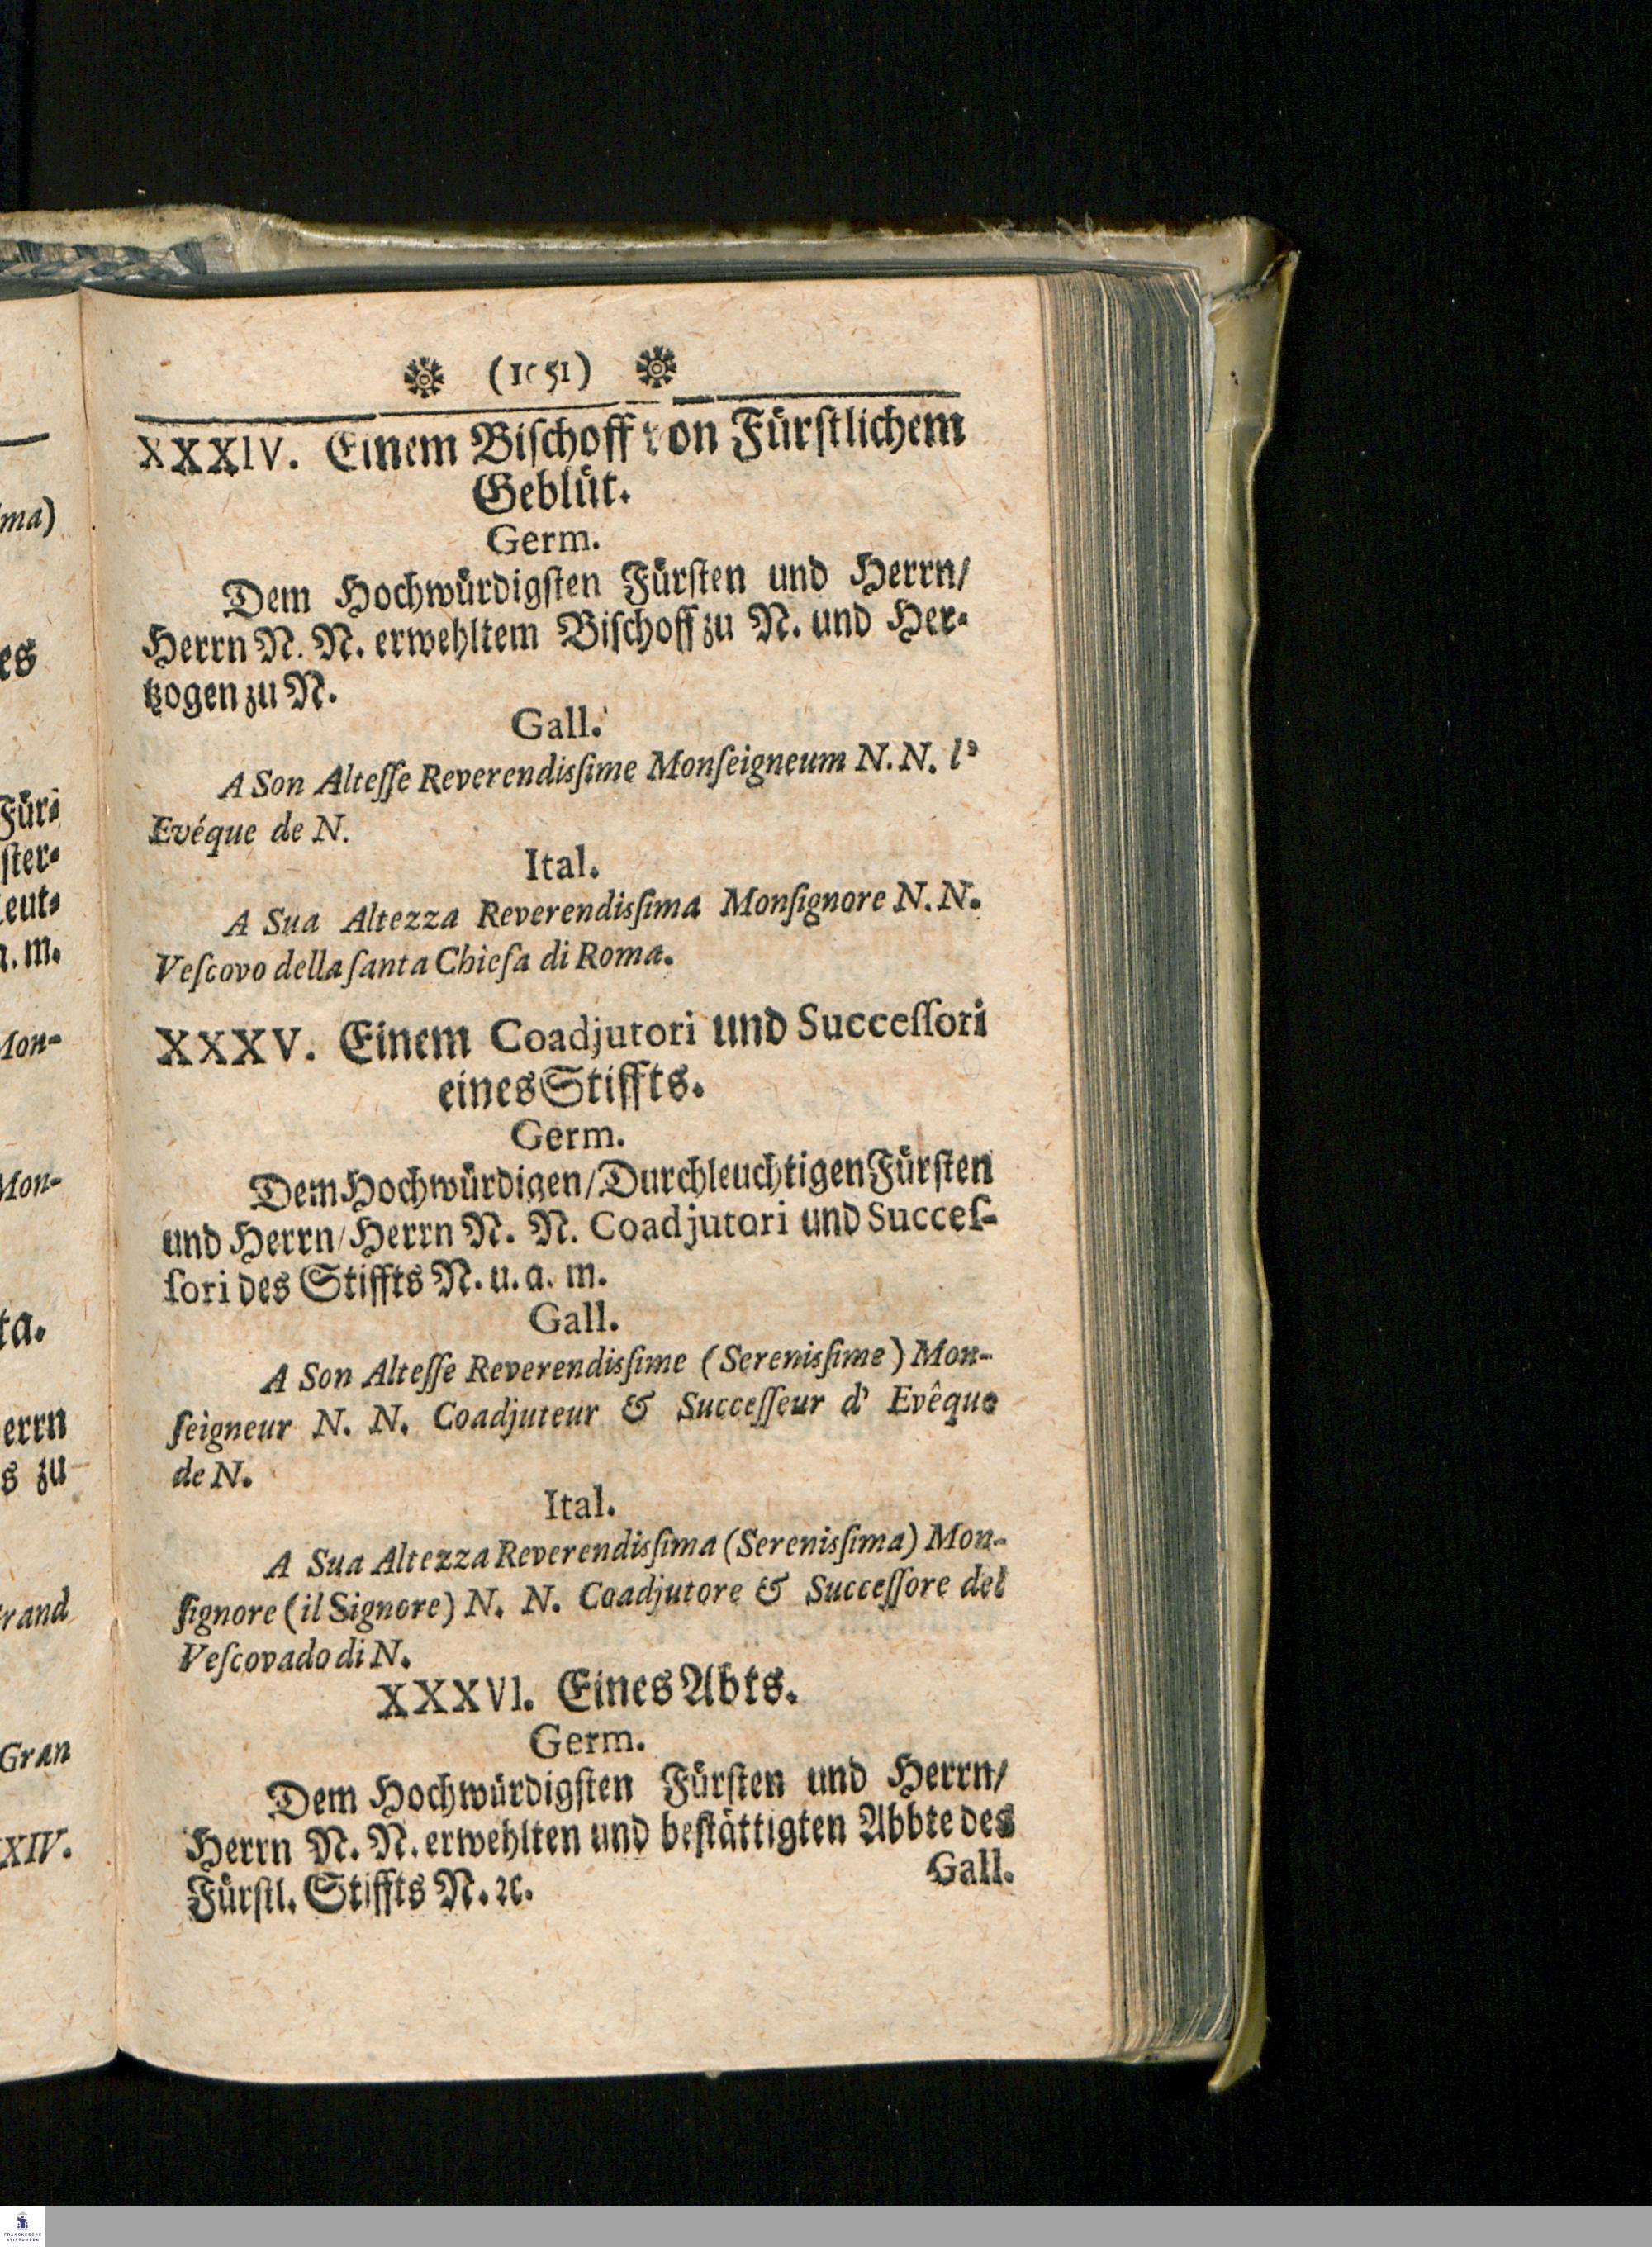 (1051)
XXXIV. Einem Biſchoff von Fürſtlichem
Geblüt.
Germ.
Dem Hochwürdigſten Fürſten und Herrn/
Herrn N. N. erwehltem Biſchoff zu N. und Her-
tzogen zu N.
Gall.
A Son Alteſſe Reverendisſime Monſeigneum N. N. l'
Evéque de N.
Ital.
A Sua Altezza Reverendisſima Monſignore N. N.
Veſcovo della ſanta Chieſa di Roma.
XXXV. Einem Coadjutori und Succeſſori
eines Stiffts.
Germ.
Dem Hochwürdigen/Durchleuchtigen Fürſten
und Herrn/Herrn N. N. Coadjutori und Succeſ-
ſori des Stiffts N. u. a. m.
Gall.
A Son Alteſſe Reverendisſime (Serenisſime) Mon-
ſeigneur N. N. Coadjuteur & Succeſſeur d' Evêque
de N.
Ital.
A Sua Altezza Reverendisſima (Serenisſima) Mon-
ſignore (il Signore) N. N. Coadjutore & Succeſſore del
Veſcovado di N.
XXXVI. Eines Abts.
Germ.
Dem Hochwürdigſten Fürſten und Herrn/
Herrn N. N. erwehlten und beſtättigten Abbte des
Fürſtl. Stiffts N. ꝛc.
Gall.
ma)
es
Für-
ſter-
leut-
a. m.
Mon-
Mon-
ta.
errn
s zu
rand
Gran
XXIV.
FRANCKESCHE
STIFTUNGEN